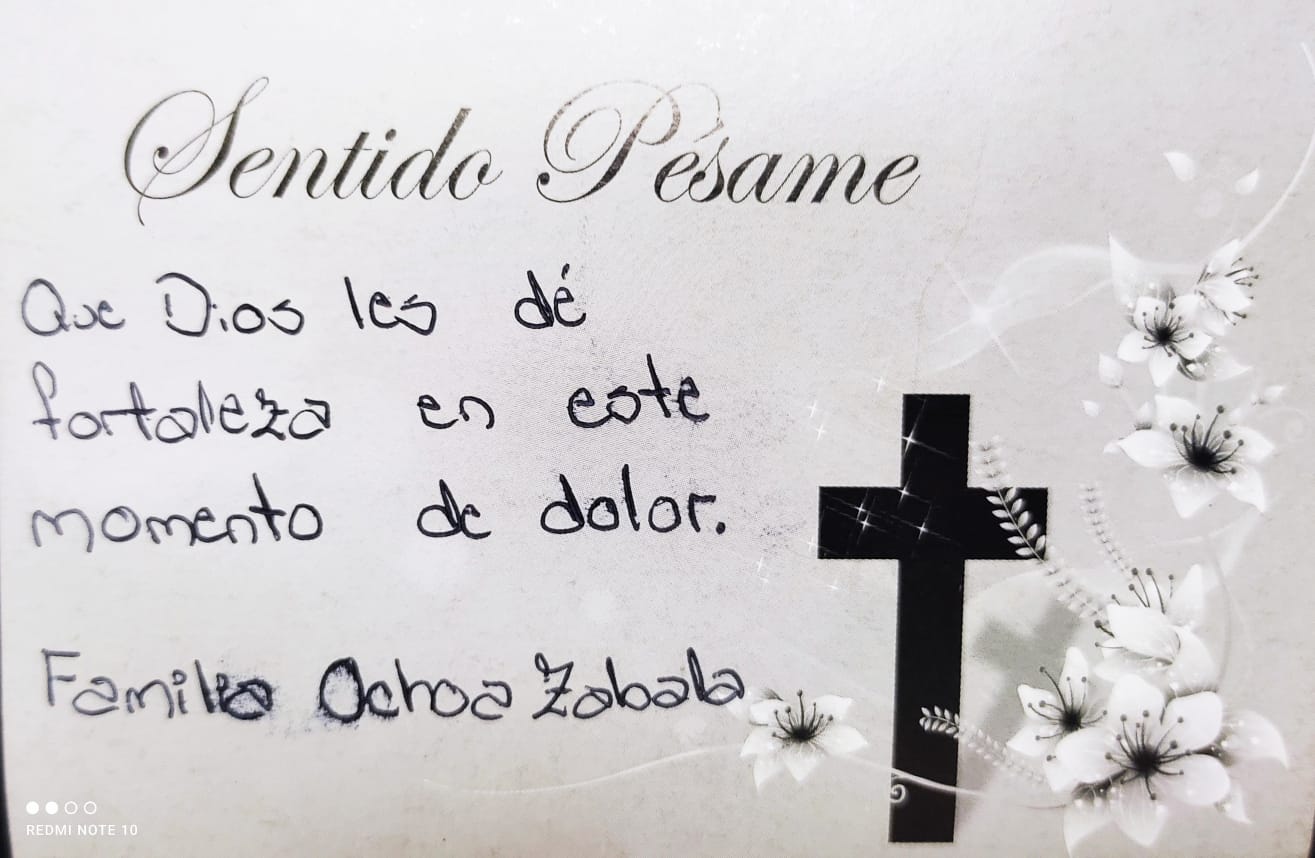 Sentido Pésame
Que Dios les dé
fortaleza en este
momento de dolor.
Familia Ochoa Zabala
REDMI NOTE 10